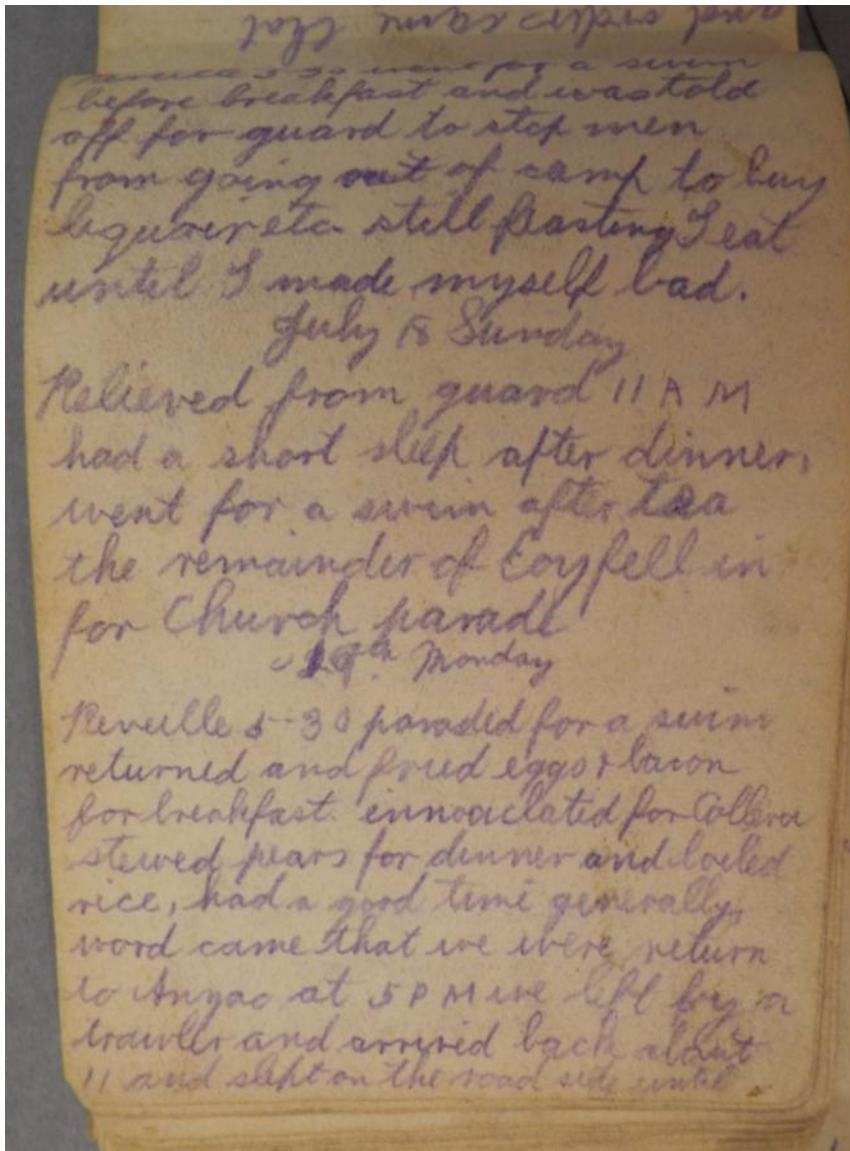 and orders came that
Reveille 5-30 went for a swim
before breakfast and was told
off for guard to stop men
from going out of camp to buy
liquair etc still feasting I eat
until I made myself bad.
July 18 Sunday
Relieved from guard 11 A M
had a short sleep after dinner,
went for a swim after tea
the remainder of Coy fell in
for Church parade
19th Monday
Reveille 5-30 paraded for a swim
returned and fried eggs & bacon
for breakfast. innoaclated for Collera
stewed pears for dinner and boiled
rice, had a good time generally,
word came that we were return
to Anzac at 5 P M we left by a
trawler and arrived back about
11 and slept on the road side until